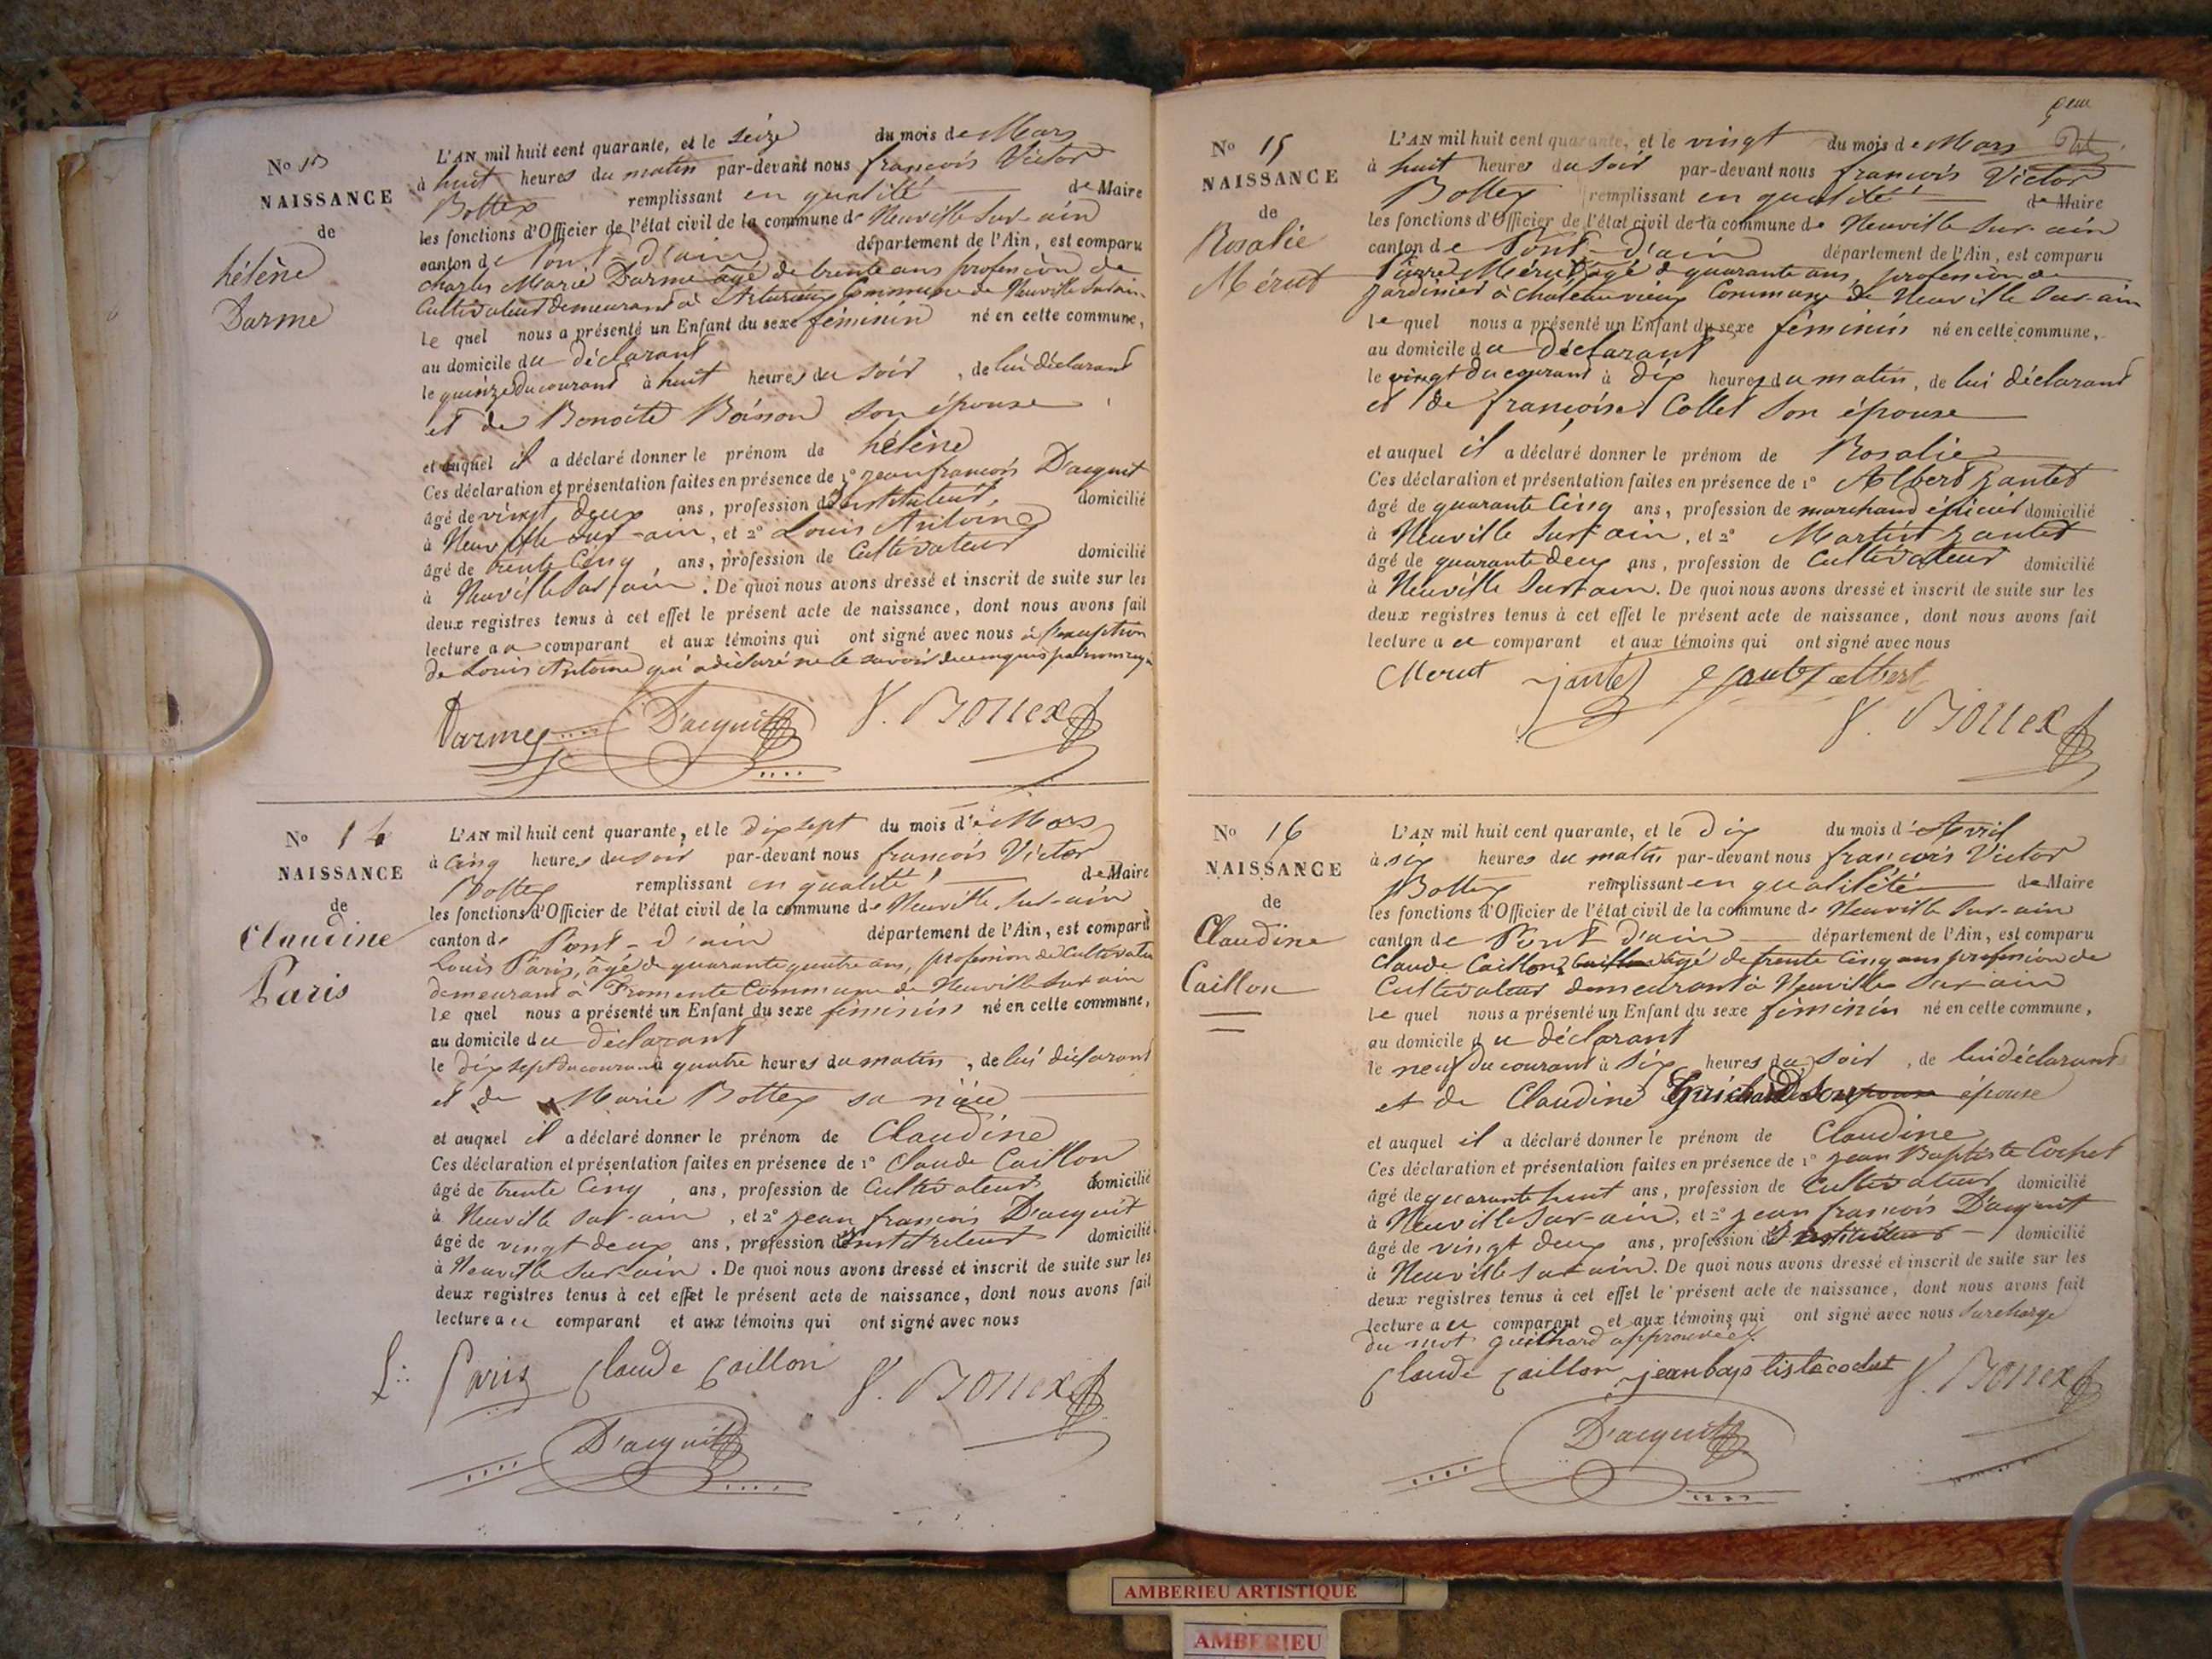 No 13
NAISSANCE
de
hélène
Darme
L'AN mil huit cent quarante, et le seize du mois de Mars
à huit heures du matin par-devant nous françois Victor
Bottex remplissant en qualité de Maire
les fonctions d'Officier de l'état civil de la commune de Neuville sur-ain
canton de Pont-d'ain département de l'Ain, est comparu
Charles Marie Darme âgé de trente ans profession de
Cultivateur demeurant à Commune de Neuville sur ain
le quel nous a présenté un Enfant du sexe féminin né en cette commune,
au domicile du déclarant
le quinze du courant à huit heures du soir, de lui déclarant
et de Benoite Boisson son épouse
et auquel il a déclaré donner le prénom de hélène
Ces déclaration et présentation faites en présence de 1° jean françois D'acquit
âgé de vingt deux ans, profession d'Instituteur, domicilié
à Neuville sur-ain, et 2° Louis Antoine
âgé de trente Cinq, ans, profession de Cultivateur domicilié
à Neuville sur ain. De quoi nous avons dressé et inscrit de suite sur les
deux registres tenus à cet effet le présent acte de naissance, dont nous avons fait
lecture au comparant et aux témoins qui ont signé avec nous à l'exception
de Louis Antoine qui a déclaré ne le savoir de ce enquis par nous
Darme D'acquit V. Bottex
No 14
NAISSANCE
de
Claudine
Paris
L'AN mil huit cent quarante, et le dix sept du mois de Mars
à cinq heures du soir par-devant nous françois Victor
Bottex remplissant en qualité de Maire
les fonctions d'Officier de l'état civil de la commune de Neuville sur-ain
canton de Pont-d'ain département de l'Ain, est comparu
Louis Paris, âgé de quarante quatre ans, profession de Cultivateur
demeurant à Fromente Commune de Neuville sur ain
le quel nous a présenté un Enfant du sexe féminin né en cette commune,
au domicile du déclarant
le dix sept du courant à quatre heures du matin, de lui déclarant
et de Marie Bottex sa
et auquel il a déclaré donner le prénom de Claudine
Ces déclaration et présentation faites en présence de 1° Claude Caillon
âgé de trente Cinq, ans, profession de Cultivateur domicilié
à Neuville sur-ain, et 2° jean françois D'acquit
âgé de vingt deux ans, profession d'Instituteur domicilié
à Neuville sur-ain. De quoi nous avons dressé et inscrit de suite sur les
deux registres tenus à cet effet le présent acte de naissance, dont nous avons fait
lecture au comparant et aux témoins qui ont signé avec nous
L: Paris Claude Caillon V. Bottex
D'acquit
No 15
NAISSANCE
de
Rosalie
Mérut
L'AN mil huit cent quarante, et le vingt du mois de Mars
à huit heures du soir par-devant nous françois Victor
Bottex remplissant en qualité de Maire
les fonctions d'Officier de l'état civil de la commune de Neuville sur-ain
canton de Pont-d'ain département de l'Ain, est comparu
Pierre Mérut âgé de quarante ans, profession de
jardinier à châteauvieux Commune de Neuville sur-ain
le quel nous a présenté un Enfant du sexe féminin né en cette commune,
au domicile du Déclarant
le vingt du courant à dix heures du matin, de lui déclarant
et de françoise Collet son épouse
et auquel il a déclaré donner le prénom de Rosalie
Ces déclaration et présentation faites en présence de 1° Albert jantet
âgé de quarante Cinq ans, profession de marchand épicier domicilié
à Neuville sur ain, et 2° Martin jantet
âgé de quarante deux ans, profession de Cultivateur domicilié
à Neuville sur ain. De quoi nous avons dressé et inscrit de suite sur les
deux registres tenus à cet effet le présent acte de naissance, dont nous avons fait
lecture au comparant et aux témoins qui ont signé avec nous
Merut jantet jantet albert
V. Bottex
No 16
NAISSANCE
de
Claudine
Caillon
L'AN mil huit cent quarante, et le dix du mois d'Avril
à six heures du matin par-devant nous françois Victor
Bottex remplissant en qualitété de Maire
les fonctions d'Officier de l'état civil de la commune de Neuville sur-ain
canton de Pont d'ain département de l'Ain, est comparu
Claude Caillon âgé de trente Cinq ans profession de
Cultivateur demeurant à Neuville sur-ain
le quel nous a présenté un Enfant du sexe féminin né en cette commune,
au domicile du déclarant
le neuf du courant à six heures du soir, de lui déclarant
et de Claudine Guichard son épouse
et auquel il a déclaré donner le prénom de Claudine
Ces déclaration et présentation faites en présence de 1° jean Baptiste Cochet
âgé de quarante huit ans, profession de Cultivateur domicilié
à Neuville sur-ain, et 2° jean françois D'acquit
âgé de vingt deux ans, profession d'Instituteur domicilié
à Neuville sur-ain. De quoi nous avons dressé et inscrit de suite sur les
deux registres tenus à cet effet le présent acte de naissance, dont nous avons fait
lecture au comparant et aux témoins qui ont signé avec nous surcharge
du mot guichard approuvée.
Claude Caillon jean baptiste cochet V. Bottex
D'acquit
AMBERIEU ARTISTIQUE
AMBERIEU